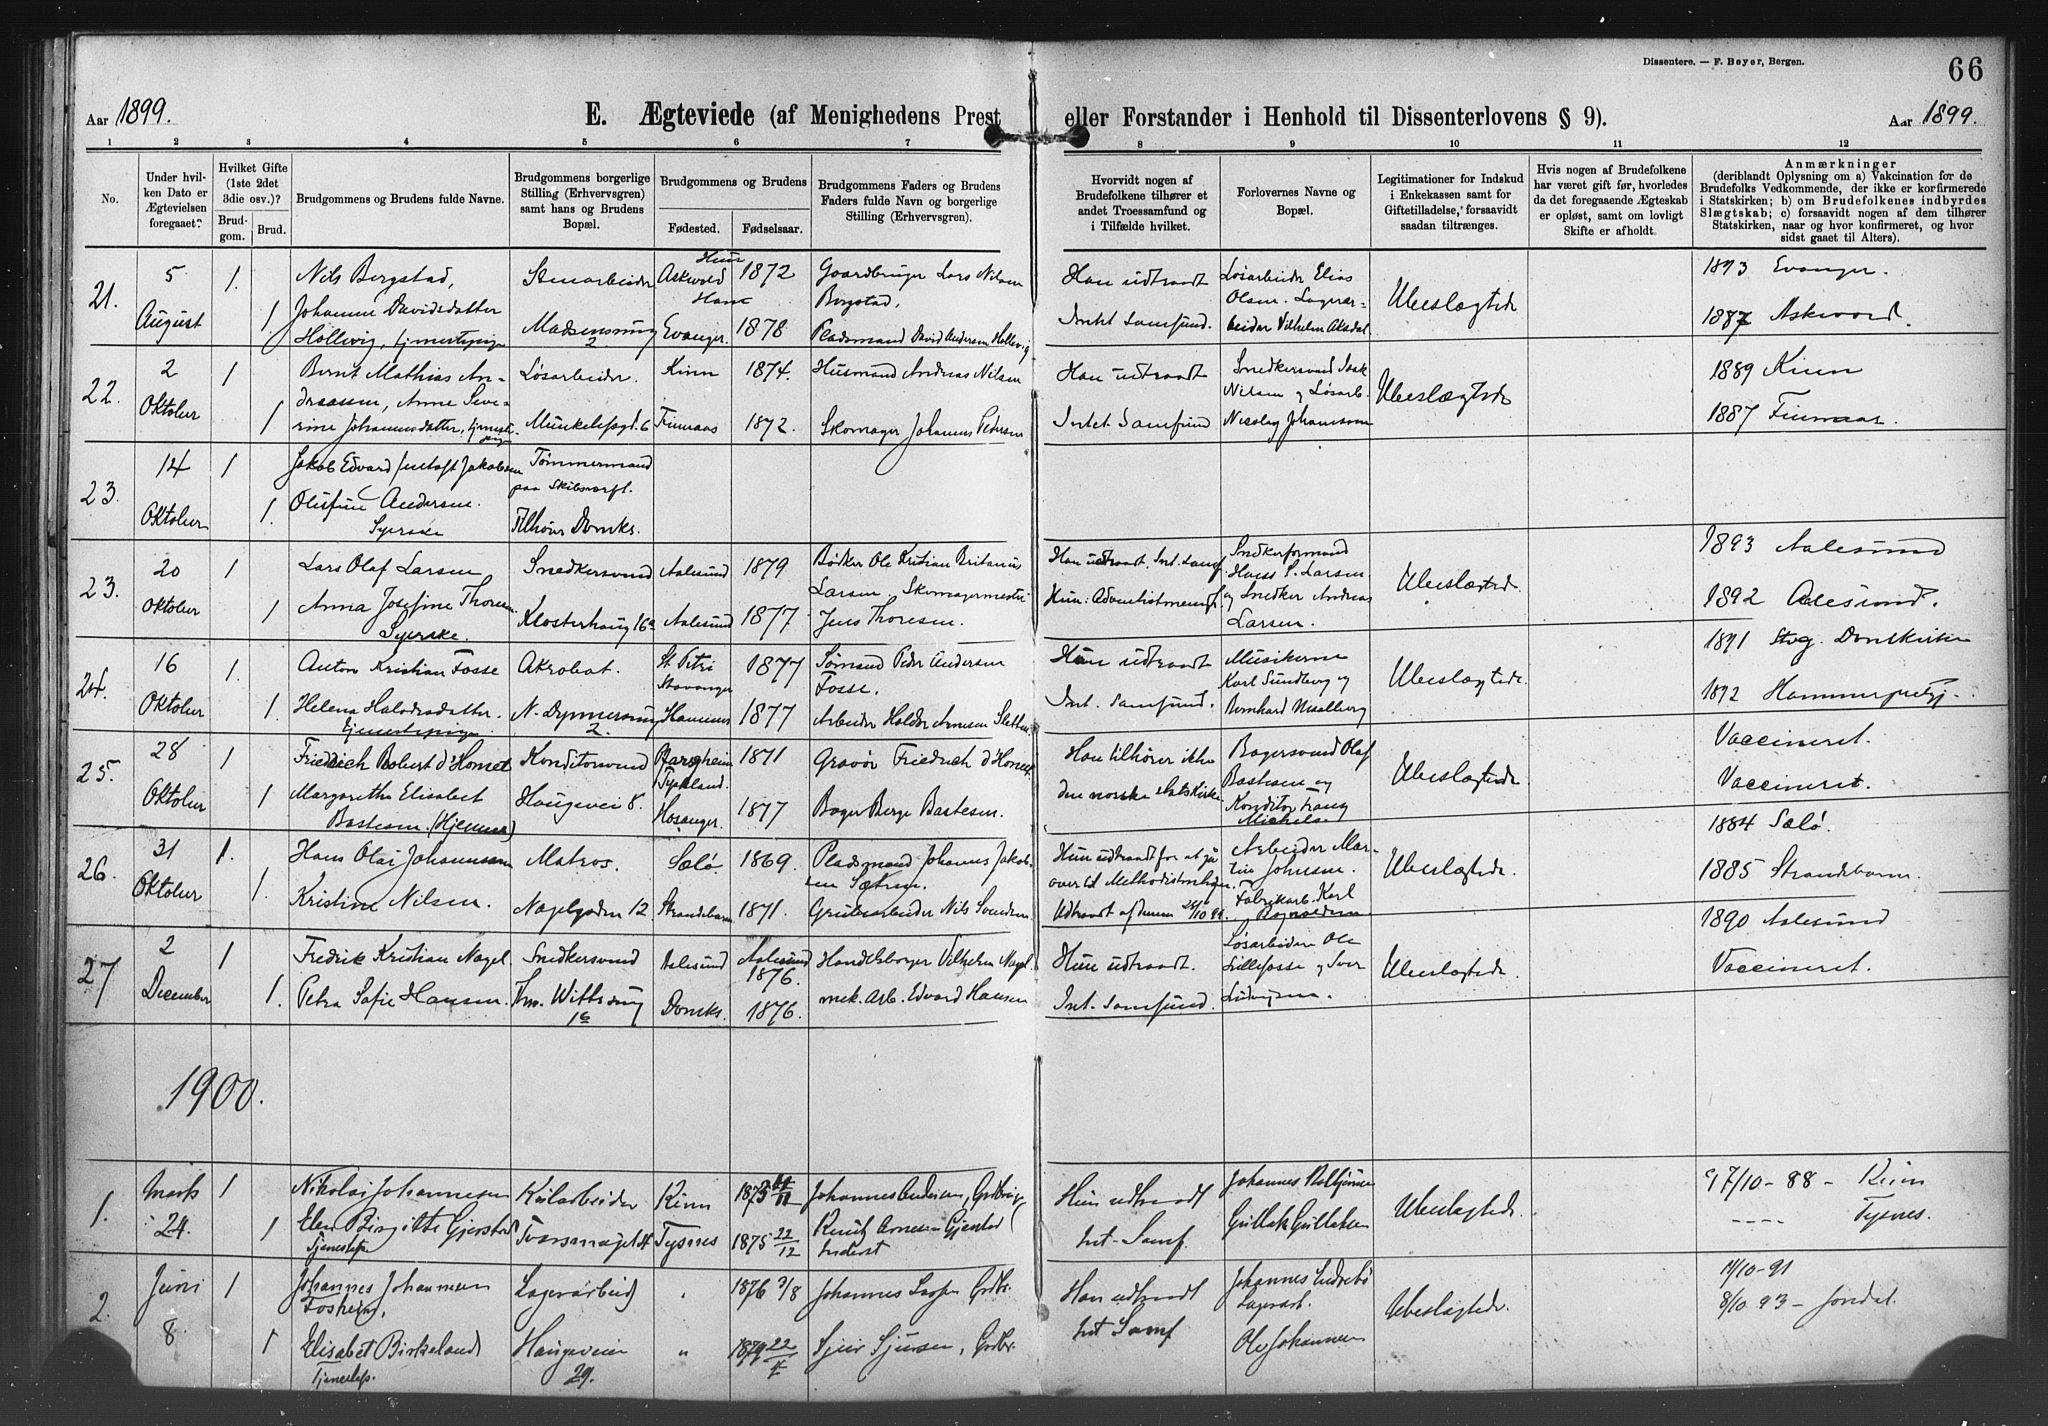 Dissentere. — F. Beyer, Bergen.
66
Aar 1899.
E. Ægteviede (af Menighedens Prest eller Forstander i Henhold til Dissenterlovens § 9).
Aar 1899.
1 2 3 4 5 6 7 8 9 10 11 12
No.
Under hvilken Dato er Ægtevielsen foregaaet?
Hvilket Gifte (1ste 2det 3die osv.)?
Brudgom. Brud.
Brudgommens og Brudens fulde Navne.
Brudgommens borgerlige Stilling (Erhvervsgren) samt hans og Brudens Bopæl.
Brudgommens og Brudens
Fødested. Fødselsaar.
Brudgommens Faders og Brudens Faders fulde Navn og borgerlige Stilling (Erhvervsgren).
Hvorvidt nogen af Brudefolkene tilhører et andet Troessamfund og i Tilfælde hvilket.
Forlovernes Navne og Bopæl.
Legitimationer for Indskud i Enkekassen samt for Giftetilladelse, forsaavidt saadan tiltrænges.
Hvis nogen af Brudefolkene har været gift før, hvorledes da det foregaaende Ægteskab er opløst, samt om lovligt Skifte er afholdt.
Anmærkninger
(deriblandt Oplysning om a) Vakcination for de Brudefolks Vedkommende, der ikke er konfirmerede i Statskirken; b) om Brudefolkenes indbyrdes Slægtskab; c) forsaavidt nogen af dem tilhører Statskirken, naar og hvor konfirmeret, og hvor sidst gaaet til Alters).
21. 5 August 1. 1.
Nils Bergstad,
Johanne Davidsdatter
Hollevig, tjenestepige
Stenarbeider
Madsensmug 2
Askvold 1872
Evanger. 1878
Gaardbruger Lars Nilsen
Bergstad.
Pladsmand David Andersen Hollevig
Han udtraadt
Intet Samfund.
Løsarbeider Elias
Olsen. Lagerar-
beider Vilhelm Aksdal
Ubeslægtede
1893 Evanger.
1887 Askvold.
22. 2 Oktober 1 1
Bernt Mathias An-
dreassen, Anne Seve-
rine Johannesdatter, tjeneste-
pige
Løsarbeider.
Munkelifsgd. 6
Kinn 1874.
Finnaas 1872.
Husmand Andreas Nilsen
Skomager Johannes Pedersen
Han udtraadt
Intet Samfund
Snedkersvend Isak
Nilsen og Løsarb.
Nicolay Johannesen
Ubeslægtede
1889 Kinn
1887 Finnaas.
23. 14 Oktober 1 1.
Jakob Edvard Gustaf Jakobsen
Olufine Andersen.
Syerske
Tømmermand
paa Skibsværft.
Tilhører Domks.
23. 20 Oktober 1 1
Lars Olaf Larsen
Anna Josefine Thoresen
Syerske.
Snedkersvend
Klosterhaug 16a
Aalesund 1879
Aalesund 1877
Bødker Ole Kristian Britanius
Larsen Skomagermester
Jens Thoresen.
Han udtraadt. Int. Samf.
Hun: Adventistmenigh.
Snedkerformand
Hans S. Larsen
og Snedker Andreas
Larsen.
Ubeslægtede.
1893 Aalesund
1892 Aalesund.
24. 16 Oktober 1. 1.
Anton Kristian Fosse
Helena Haldorsdatter.
Tjenestepige
Akrobat.
N. Dypmersmug 2.
St. Petri
Stavanger 1877
Hammer 1877
Sømand Peder Andersen
Fosse.
Arbeider Haldor Arnesen Sletten
Han udtraadt
Int. Samfund.
Musikerne
Karl Sundberg og
Bernhard Moalberg
Ubeslægtede.
1891 Stvg. Domkirken
1892 Hammer prstgj.
25. 28 Oktober 1 1
Friedrich Robert d'Homet
Margarethe Elisabet
Bastesen (Hjemme)
Konditorsvend
Haugevei 8.
Tyskland. 1871
Hosanger. 1877
Gravør Friedrich d'Homet.
Bager Berge Bastesen.
Han tilhører ikke
den norske Statskirke.
Bagersvend Olaf
Bastesen og
Konditor Franz
Michelsen
Ubeslægtede
Vaccineret.
Vaccineret.
26. 31 Oktober 1. 1.
Hans Olai Johannesen
Kristine Nilsen.
Matros.
Nagelgaden 12
Sælø. 1869.
Strandebarm 1871.
Pladsmand Johannes Jakob-
sen Sætren.
Grubearbeider Nils Svendsen
Hun udtraadt for at gaa
over til Methodistmenigheden.
Udtraadt af denne 28/10 99.
Arbeider Mar-
tin Johnsen.
Fabrikarb. Karl
Reynoldsen
Ubeslægtede.
1884 Sælø.
1885 Strandebarm.
27 2 December 1 1.
Fredrik Kristian Nagel.
Petra Sofie Hansen.
Snedkersvend
Tm. Wittsmug 16
Aalesund Aalesund 1876.
Domks. 1876.
Handelsborger Vilhelm Nagel.
mek. Arb. Edvard Hansen
Hun udtraadt.
Int. Samfund.
Løsarbeidere Ole
Lillefosse og Iver
Ludvigsen.
Ubeslægtede.
1890 Aalesund
Vaccineret.
1900.
1. Marts 24. 1 1
Nikolai Johannesen
Elen Birgitte Gjerstad
Tjenestepi.
Kularbeider
Kinn
Tysnes 1875 22/12
Johannes Andersen, Grdbrug.
Knut Arnesen Gjerstad
Inderst
Hun udtraadt
Int. Samf.
Gullak Gullaksen
Ubeslægtede.
17/10-88 - Kinn
---- Tysnes.
2. Juni 8. 1 1
Johannes Johannesen
Fosheim,
Elisabet Birkeland
Tjenestep.
Lagerarbeid
Haugeveien 29.
" 1876 3/8
" 1879 22/
Johannes Larsen Grdbr.
Sjur Sjursen, Grdbr.
Han udtraadt
Int Samf
Johannes Indrebø
Lagerarb.
Ole Johannesen
Ubeslægtede.
11/10-91
8/10 93 - Jondal.